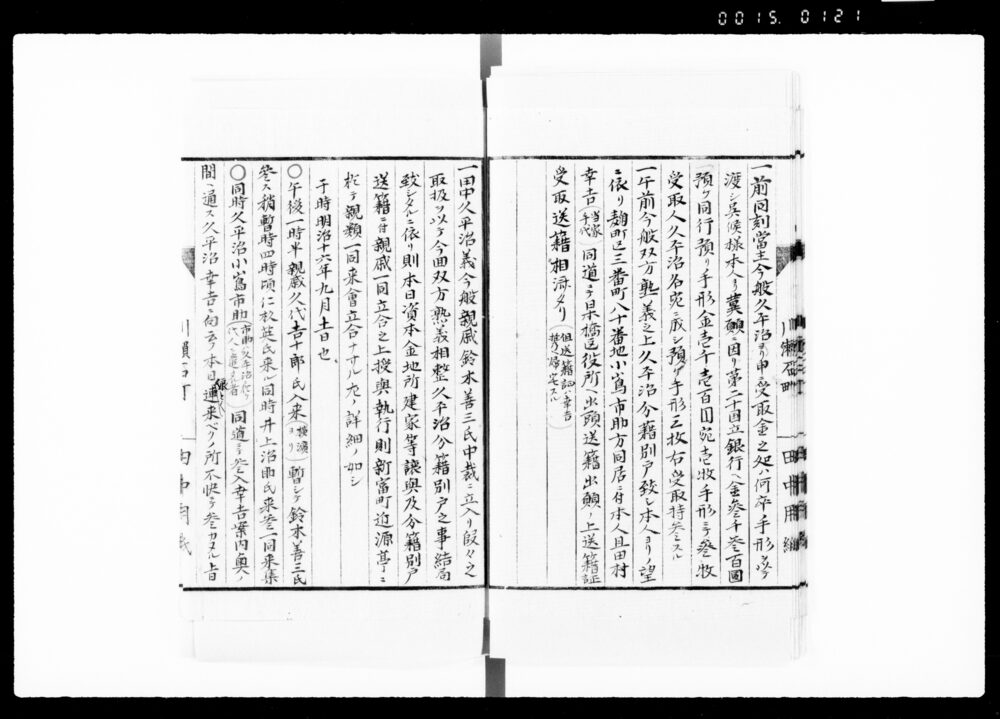 0015. 0121
一前同刻當主今般久平治ヨリ申受取金之処ハ何卒手形ヲ以テ
渡シ呉候様本人ヨリ冀願ニ因リ第二十国立銀行ヘ金叁千叁百圓
預ケ同行預リ手形金壱千壱百圓宛壱枚手形ニテ叁枚
受取人久平治名宛ニ成シ預ケ手形三枚右受取持参ス
一午前今般双方熟義之上久平治分籍別戸致シ本人ヨリノ望
ニ依リ麹町区三番町八十番地小寫市助方同居ニ付本人且田村
幸吉（当家手代）同道ニテ京橋区役所ヘ出頭送籍出願ノ上送籍証
受取送籍相済タリ（但送籍証幸吉携ヘ帰宅ス）
一田中久平治義今般親戚鈴木善三氏中裁ニ立入リ段々之
取扱ヲ以テ今回双方熟義相整久平治分籍別戸之事結局
致シタルニ依リ則本日資本金地所建家等譲與及分籍別戸
送籍ニ付親戚一同立合之上授與執行則新富町近源亭ニ
於テ親類一同来會立合ナサル九ノ詳細ノ如シ
于時明治十六年九月十一日也
〇午後一時半親戚久代吉十郎氏入来（横濱ヨリ）暫シテ鈴木善三氏
参ス稍暫時四時頃仁杉英氏来ル同時井上治助氏来叁一同来集
〇同時久平治小寫市助同道ニテ叁入幸吉案内奥ノ
間ヘ通ス久平治幸吉ニ向云ク本日連来ベリノ所不快ニテ叁カヌル旨
川瀬石町
田中用紙